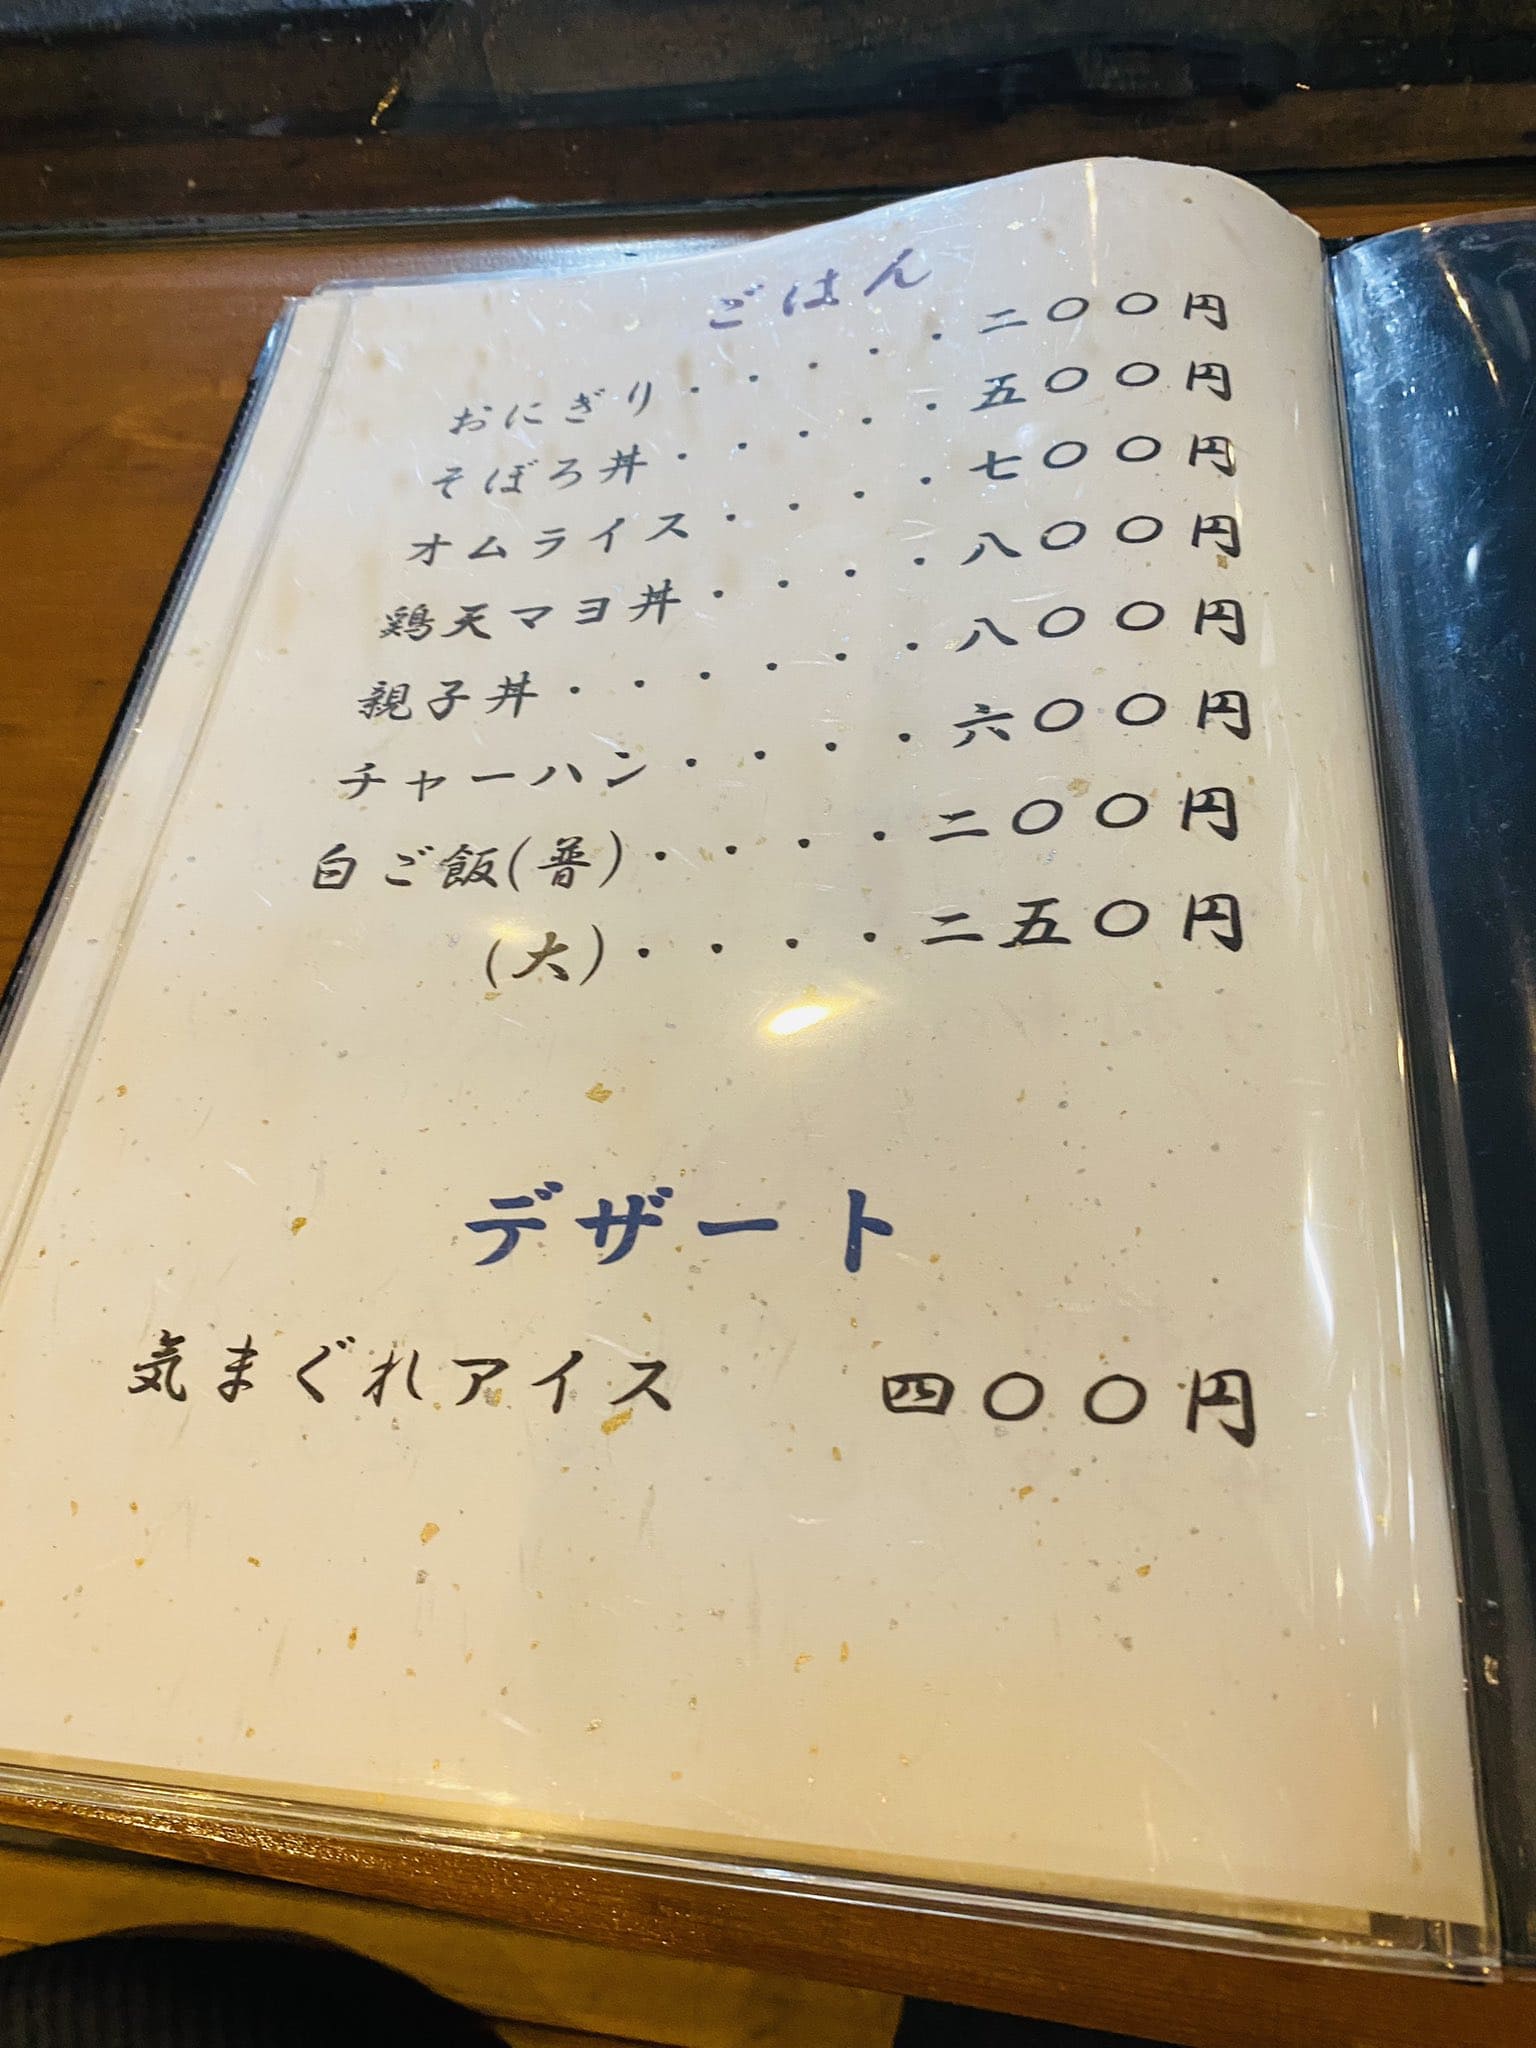 ごはん
おにぎり・・・・・二〇〇円
そぼろ丼・・・・・五〇〇円
オムライス・・・・七〇〇円
鶏天マヨ丼・・・・八〇〇円
親子丼・・・・・・八〇〇円
チャーハン・・・・六〇〇円
白ご飯(普)・・・・二〇〇円
(大)・・・・二五〇円
デザート
気まぐれアイス 四〇〇円